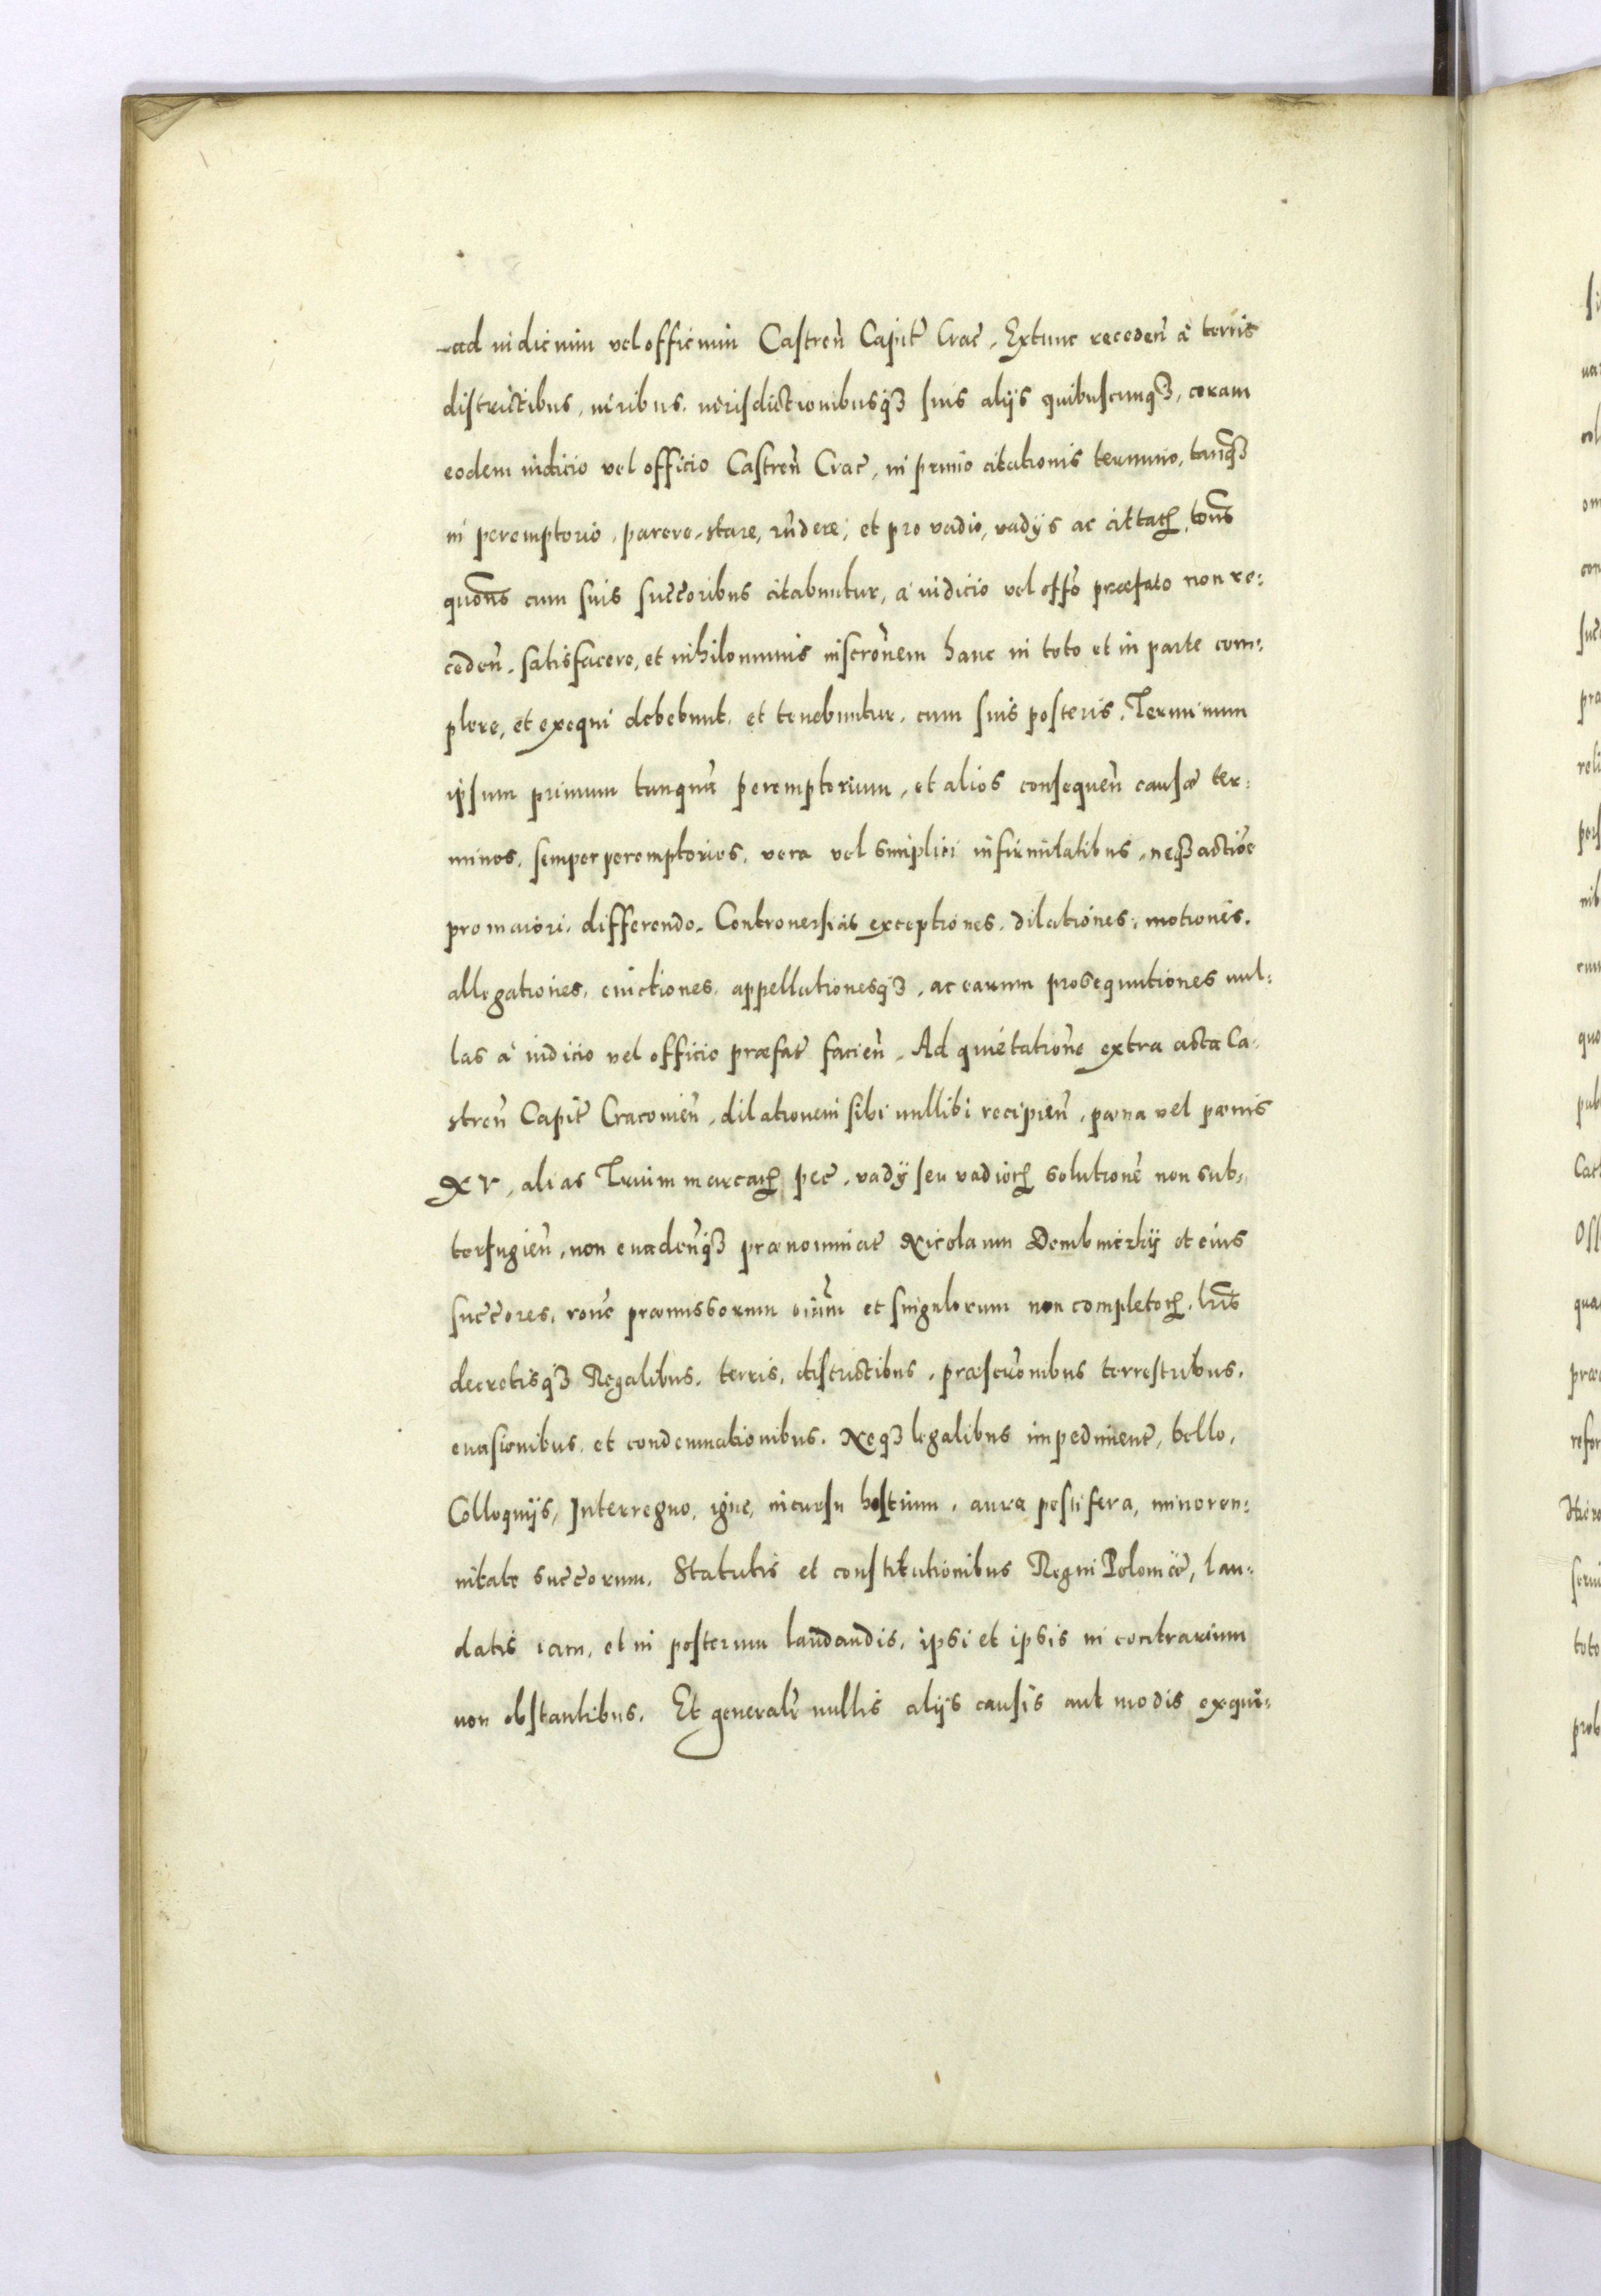 ad iudicium vel officium Castren̄ Capit̄ Crac̄, Extunc receden̄ à terris
districtibus, iuribus, iurisdictionibusq́ꝫ suis alijs quibuscunq́ꝫ, coram
eodem iudicio vel officio Castren̄ Crac̄, in primo citationis termino, tanq̄ꝫ
in peremptorio, parere, stare, rn̄dere, et pro vadio, vadijs ac citatаꝝ, tōns
quōns cum suis succ̄oribus citabuntur, à iudicio vel off̄o præfato non re:
ceden̄, satisfacere, et nihilominus inscrōnem hanc in toto et in parte com:
plere, et exequi debebunt, et tenebuntur, cum suis posteris, Terminum
ipsum primum tanquā peremptorium, et alios consequen̄ causæ ter:
minos, semper peremptorios, vera vel simplici infirmitatibus, neqꝫ actiōe
pro maiori, differendo. Controuersias exceptiones, dilationes, motiones,
allegationes, euictiones, appellationesq́ꝫ, ac earum prosequutiones nul:
las à iudicio vel officio præfat̄ facien̄, Ad quietationē extra acta Ca-
stren̄ Capit̄ Cracouien̄, dilationem sibi nullibi recipien̄, pœna vel pœnis
XV, alias Trium marcaꝝ pec̄, vadij seu vadioꝝ solutionē non sub,
terfugien̄, non euaden̄q́ꝫ prænominat̄ Nicolaum Dembinizkij et eius
succ̄ores, rōne præmissorum oīum et singulorum non completoꝝ, lr̄is
decretisq́ꝫ Regalibus, terris, districtibus, præscrōnibus terrestribus,
euasionibus, et condemnationibus. Neqꝫ legalibus impediment̄, bello,
Colloquijs, Interregno, igne, incursu hostium, aura pestifera, minoren:
nitate succ̄orum, Statutis et constitutionibus Regni Poloniæ, lau-
datis iam, et in posterum laudandis, ipsi et ipsis in contrarium
non obstantibus. Et generalr̄ nullis alijs causis aut modis exqui-